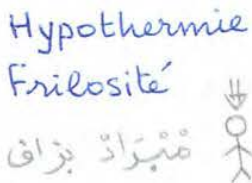 Hypothermie
Frilosité
مْبَرَّدْ بزاف